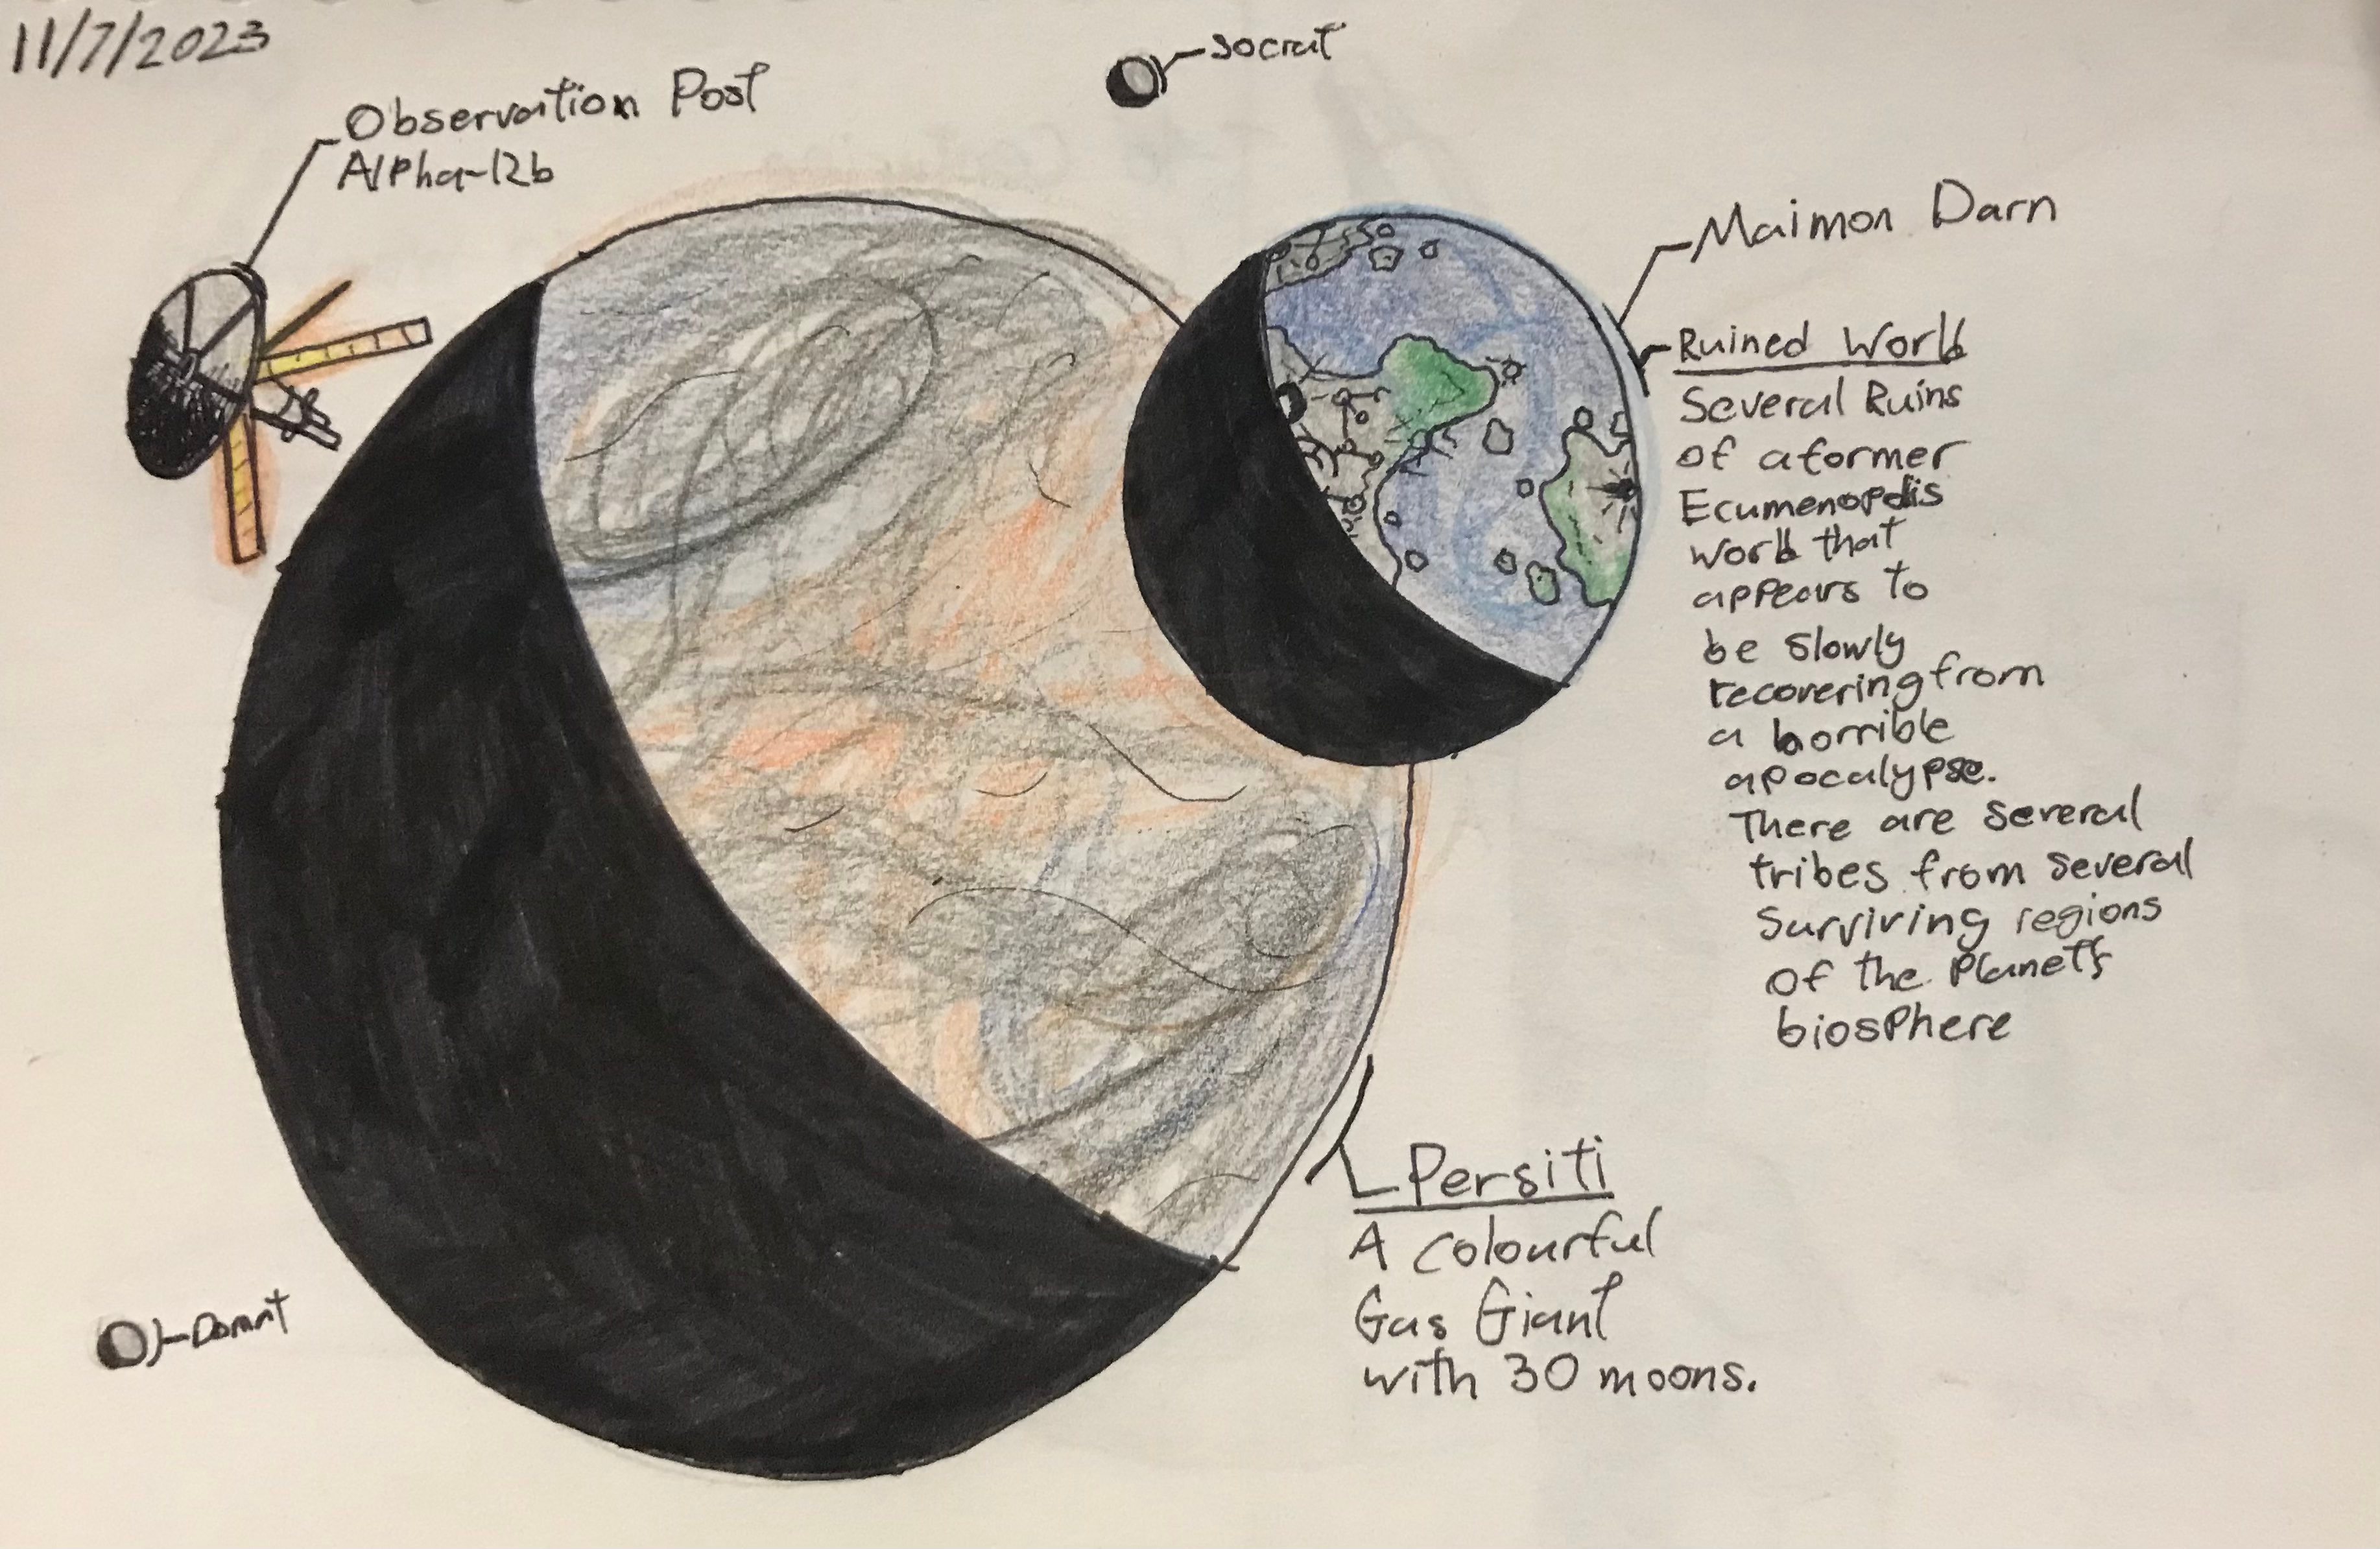 11/7/2023
Observation Post
Alpha-12b
Socrat
Maimon Darn
Ruined World
Several Ruins
of a former
Ecumenopolis
world that
appears to
be slowly
recovering from
a horrible
apocalypse.
There are several
tribes from several
surviving regions
of the Planet's
biosphere
Persiti
A colourful
Gas Giant
with 30 moons.